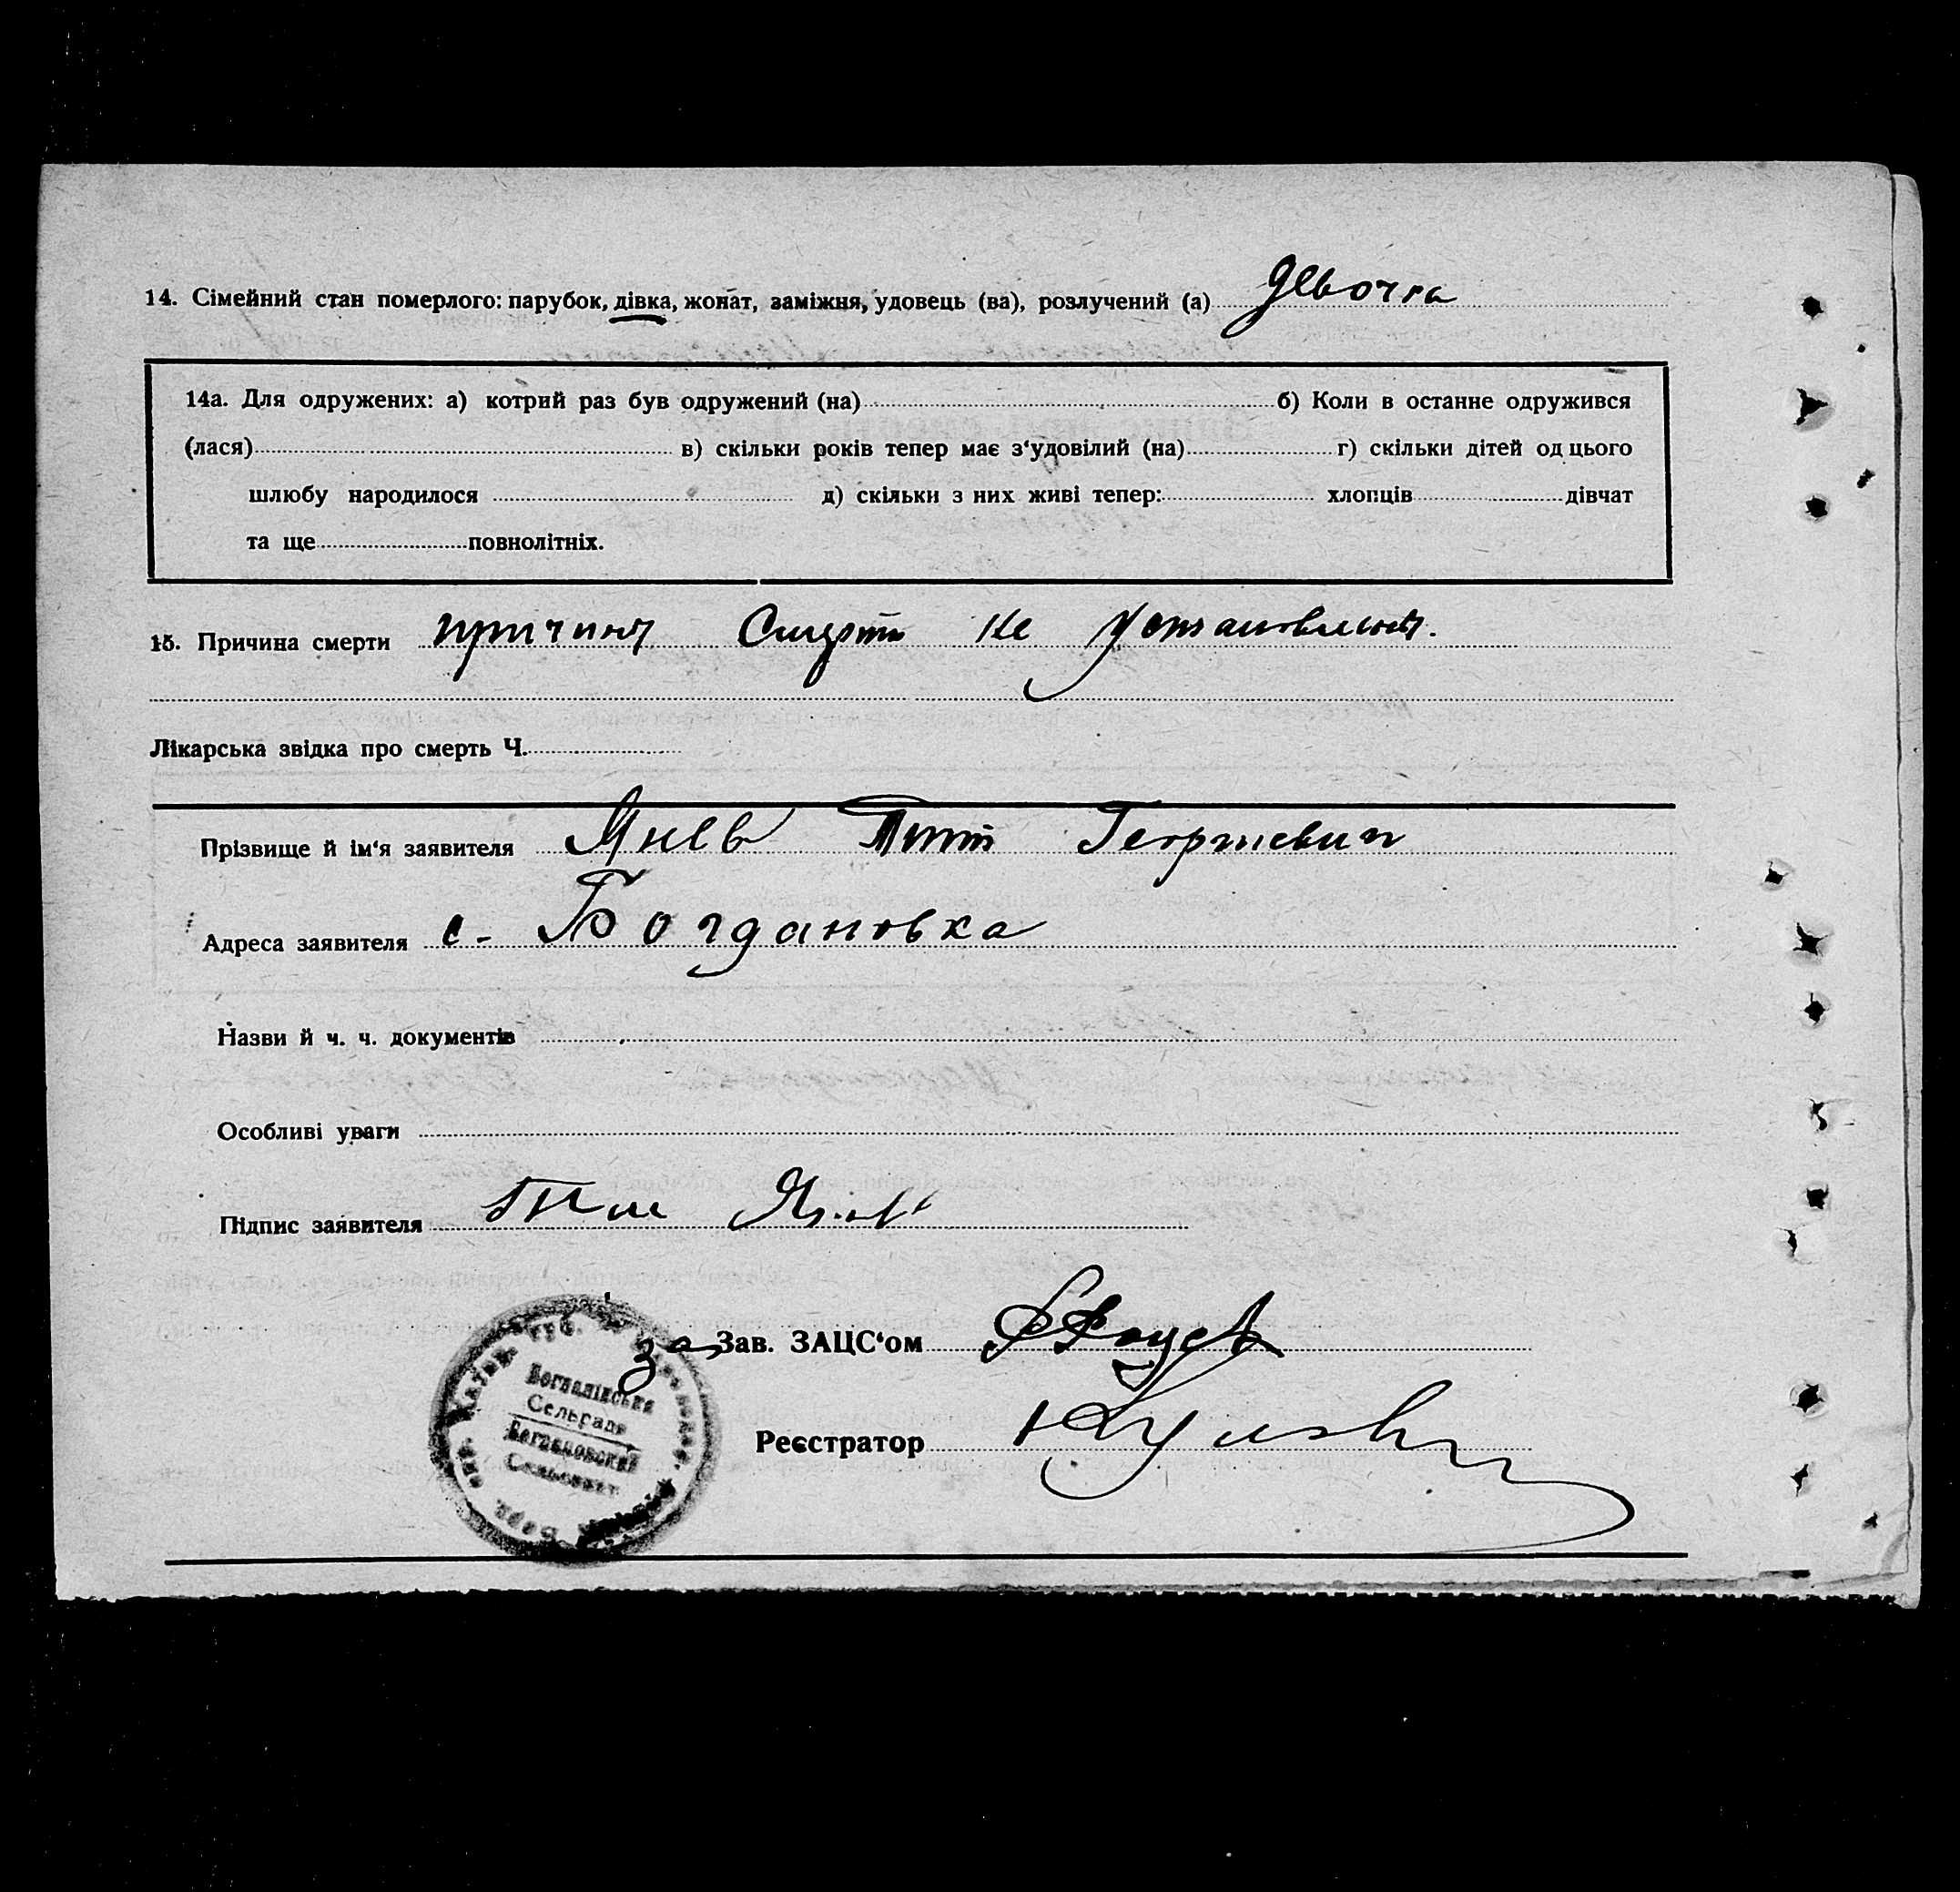 14. Сімейний стан померлого: парубок, дівка, жонат, заміжня, удовець (ва), розлучений (а) девочка
14а. Для одружених: а) котрий раз був одружений (на) б) Коли в останне одружився
(лася) в) скільки років тепер має з‘удовілий (на) г) скільки дітей од цього
шлюбу народилося д) скільки з них живі тепер: хлопців дівчат
та ще повнолітніх.
15. Причина смерти причина Смерти не Установлена.
Лікарська звідка про смерть Ч.
Прізвище й ім‘я заявителя Янев Георгиевич
Адреса заявителя с. Богдановка
Назви й ч. ч. документів
Особливі уваги
Підпис заявителя
за Зав. ЗАЦС‘ом
Реєстратор
Богданівська
Сельрада
Богдановский
Сельсовет